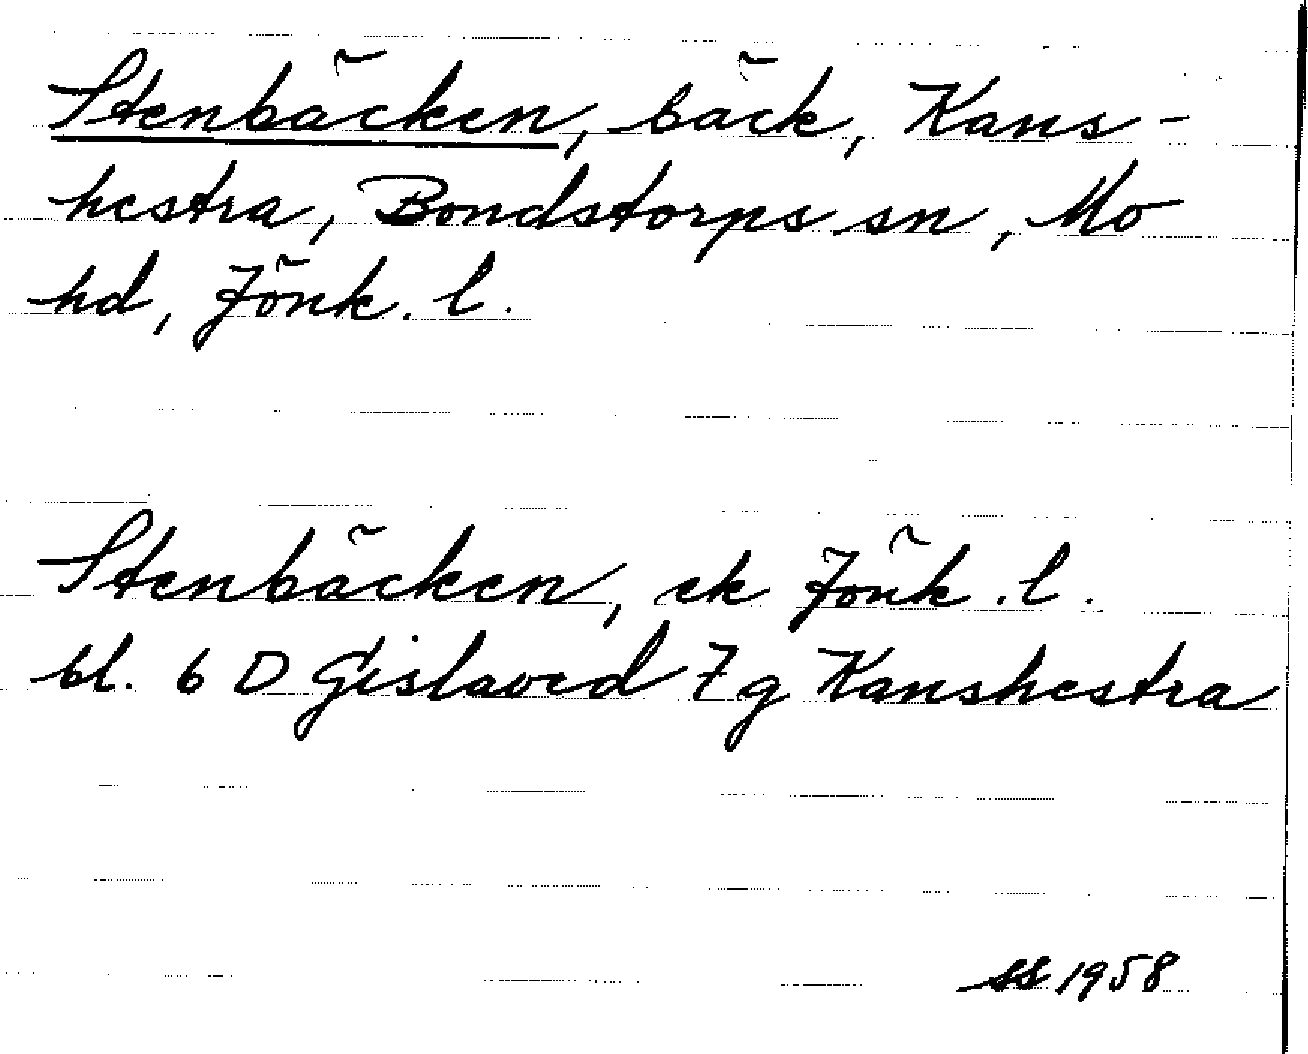 Stenbäcken, bäck, Kans-
hestra, Bondstorps sn, Mo
hd, Jönk. l.
Stenbäcken, ek Jönk. l.
bl. 6 D Gislaved 7 g Kanshestra
SS 1958